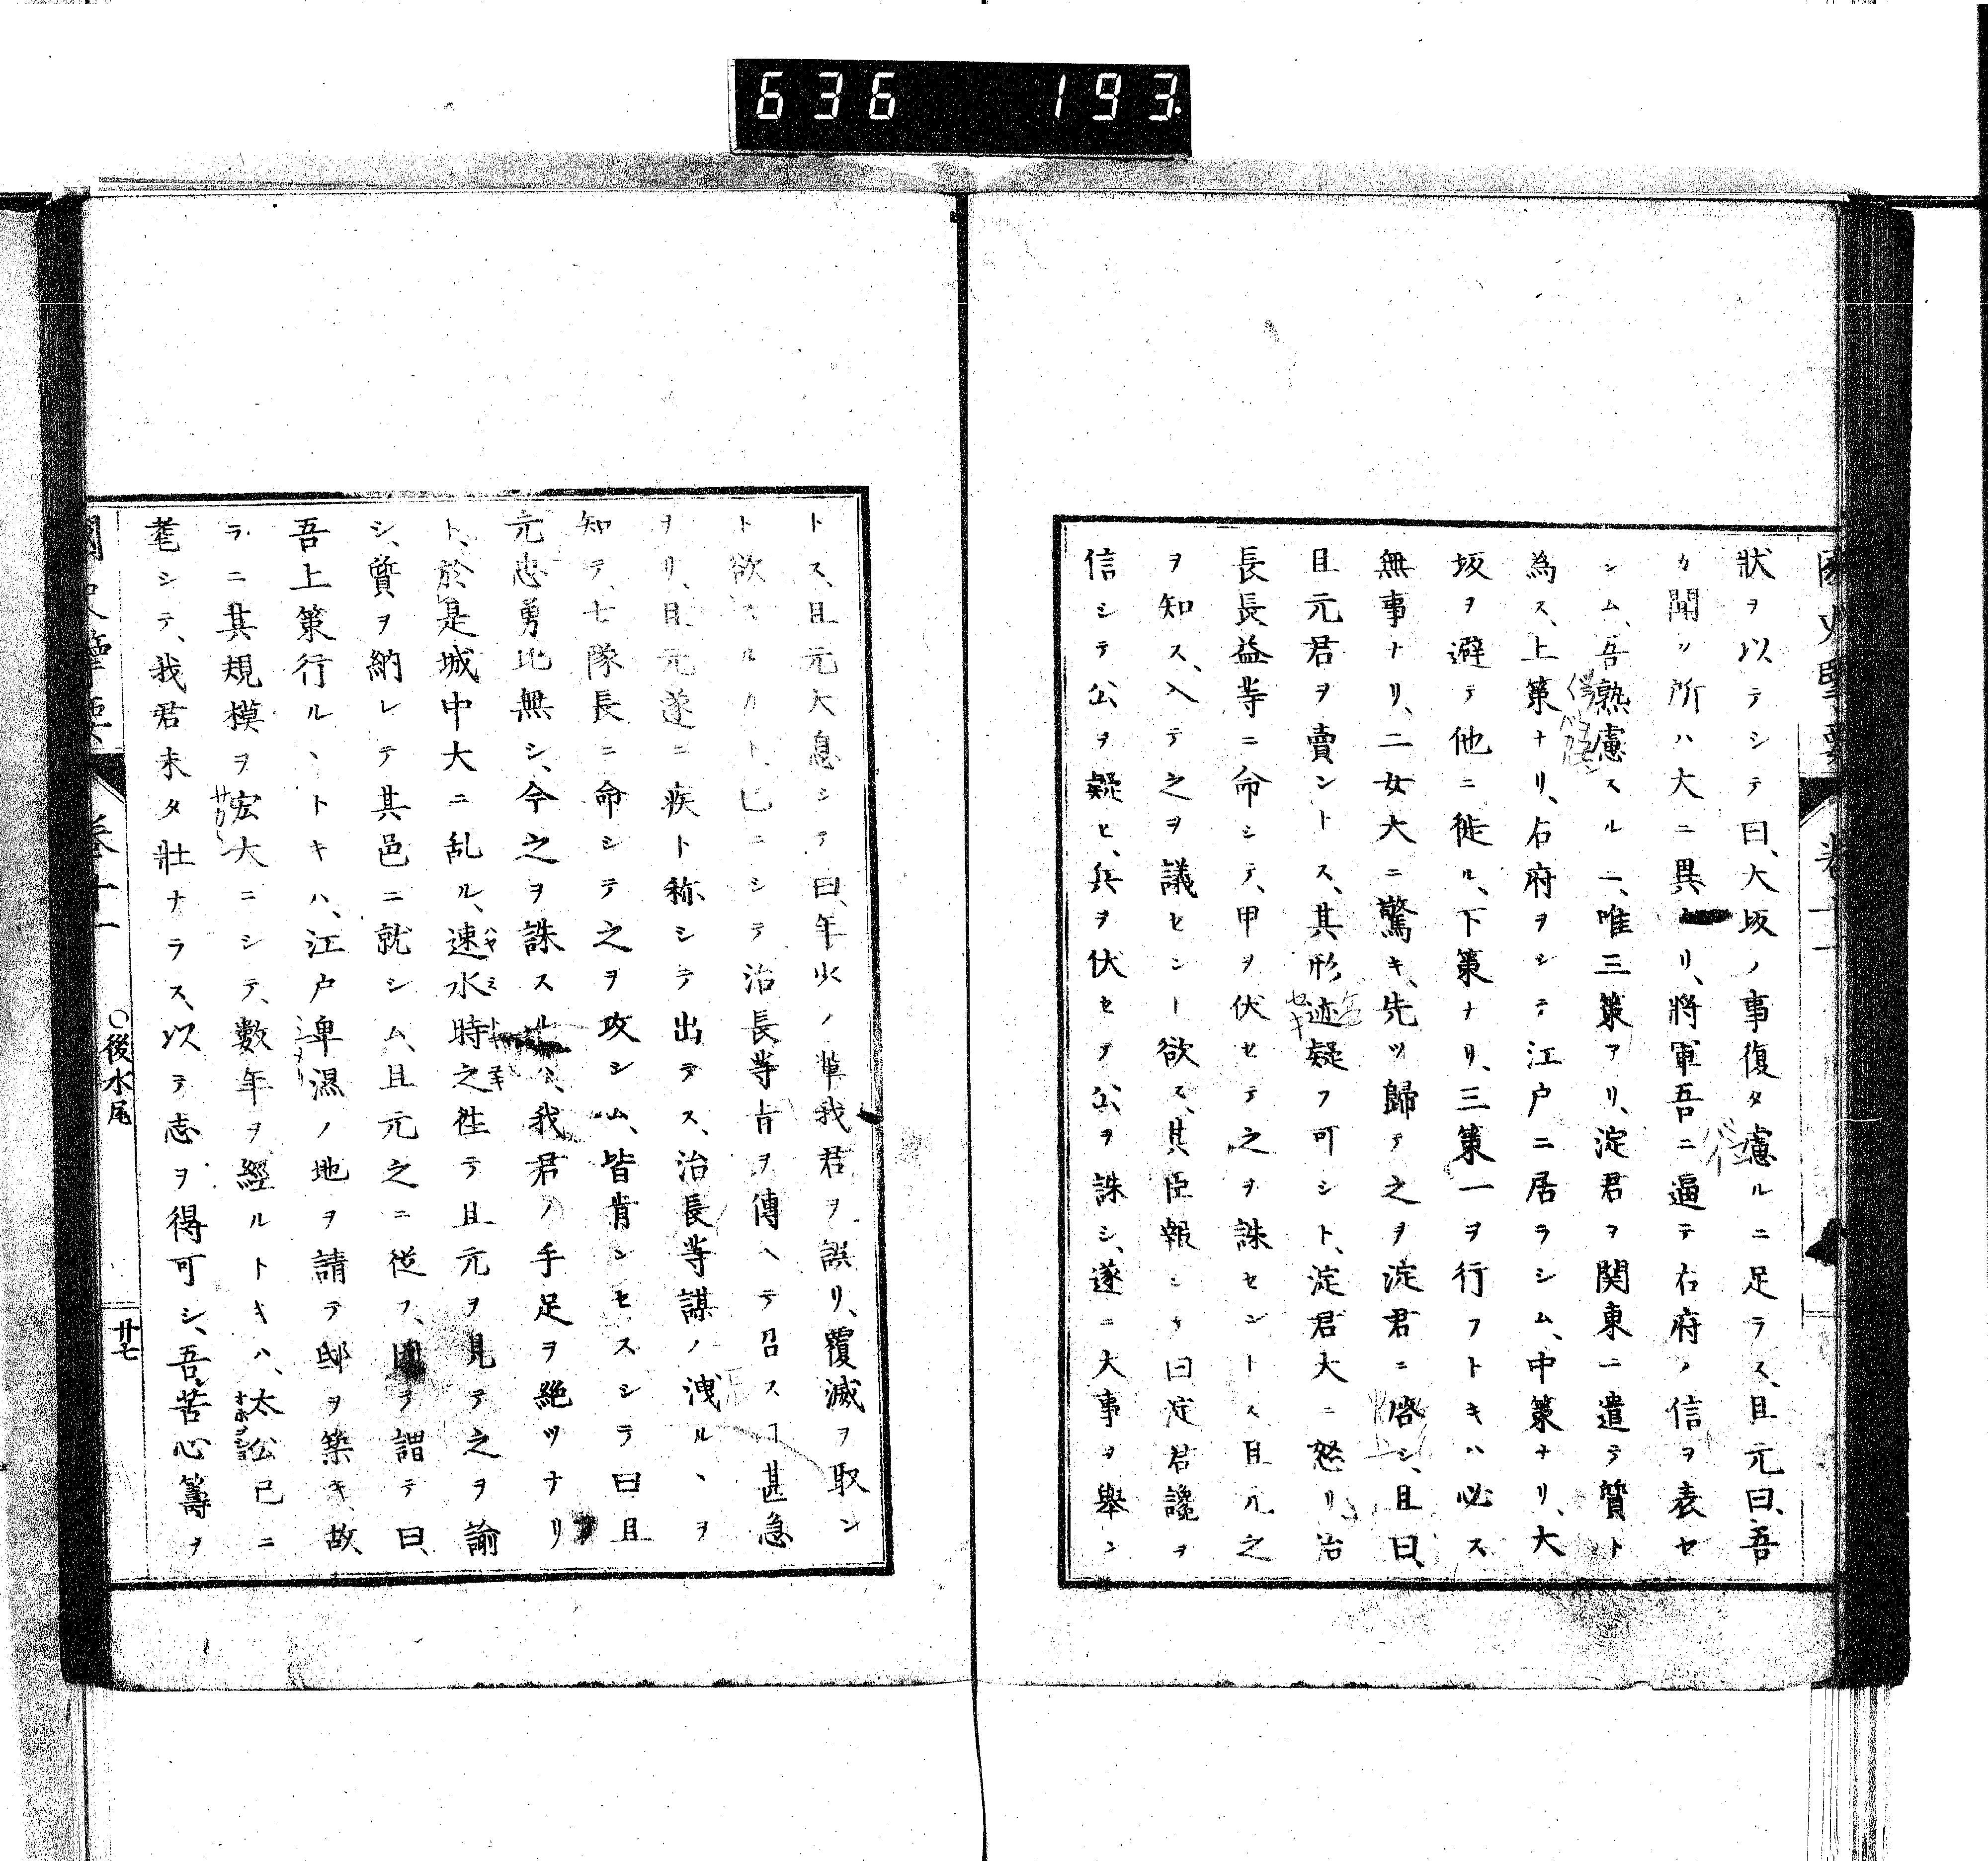 636 193.
國史擥要 卷十一
狀ヲ以テシテ曰、大坂ノ事復タ慮ルニ足ラス、且元曰、吾
カ聞ク所ハ大ニ異ナリ、將軍吾ニ逼テ右府ノ信ヲ表セ
シム、吾熟慮スルニ、唯三策アリ、淀君ヲ関東ニ遣テ質ト
為ス、上策ナリ、右府ヲシテ江戸ニ居ラシム、中策ナリ、大
坂ヲ避テ他ニ徙ル、下策ナリ、三策一ヲ行フトキハ必ス
無事トリ、二女大ニ驚キ、先ツ歸テ之ヲ淀君ニ啓シ、且曰、
且元君ヲ賣ントス、其形迹疑フ可シト、淀君大ニ怒リ、治
長長益等ニ命シテ、甲ヲ伏セテ之ヲ誅セントス且元之
ヲ知ス、入テ之ヲ議セント欲ス、其臣報シテ曰淀君讒ヲ
信シテ公ヲ疑ヒ、兵ヲ伏セテ公ヲ誅シ、遂ニ大事ヲ舉ン
トス、且元大息シテ曰、年少ノ輩我君ヲ誤リ、覆滅ヲ取ン
ト欲スルカト、已ニシテ治長等旨ヲ傳ヘテ召スヿ甚急
ヲリ、且元遂ニ疾ト称シテ出テス、治長等謀ノ洩ルヽヲ
知テ、七隊長ニ命シテ之ヲ攻シム、皆肯ンセスシラ曰且
元忠勇比無シ、今之ヲ誅スルハ、我君ノ手足ヲ絶ツナリ
ト、於是城中大ニ乱ル、速水時之徃テ且元ヲ見テ之ヲ諭
シ、質ヲ納レテ其邑ニ就シム、且元之ニ従フ、因テ謂テ曰、
吾上策行ルヽトキハ、江戸卑濕ノ地ヲ請テ邸ヲ築キ、故
ラニ其規模ヲ宏大ニシテ、數年ヲ經ルトキハ、太公已ニ
耄シテ、我君未タ壯ナラス、以テ志ヲ得可シ、吾苦心籌ヲ
國史擥要 卷十一 〇後水尾 廿七